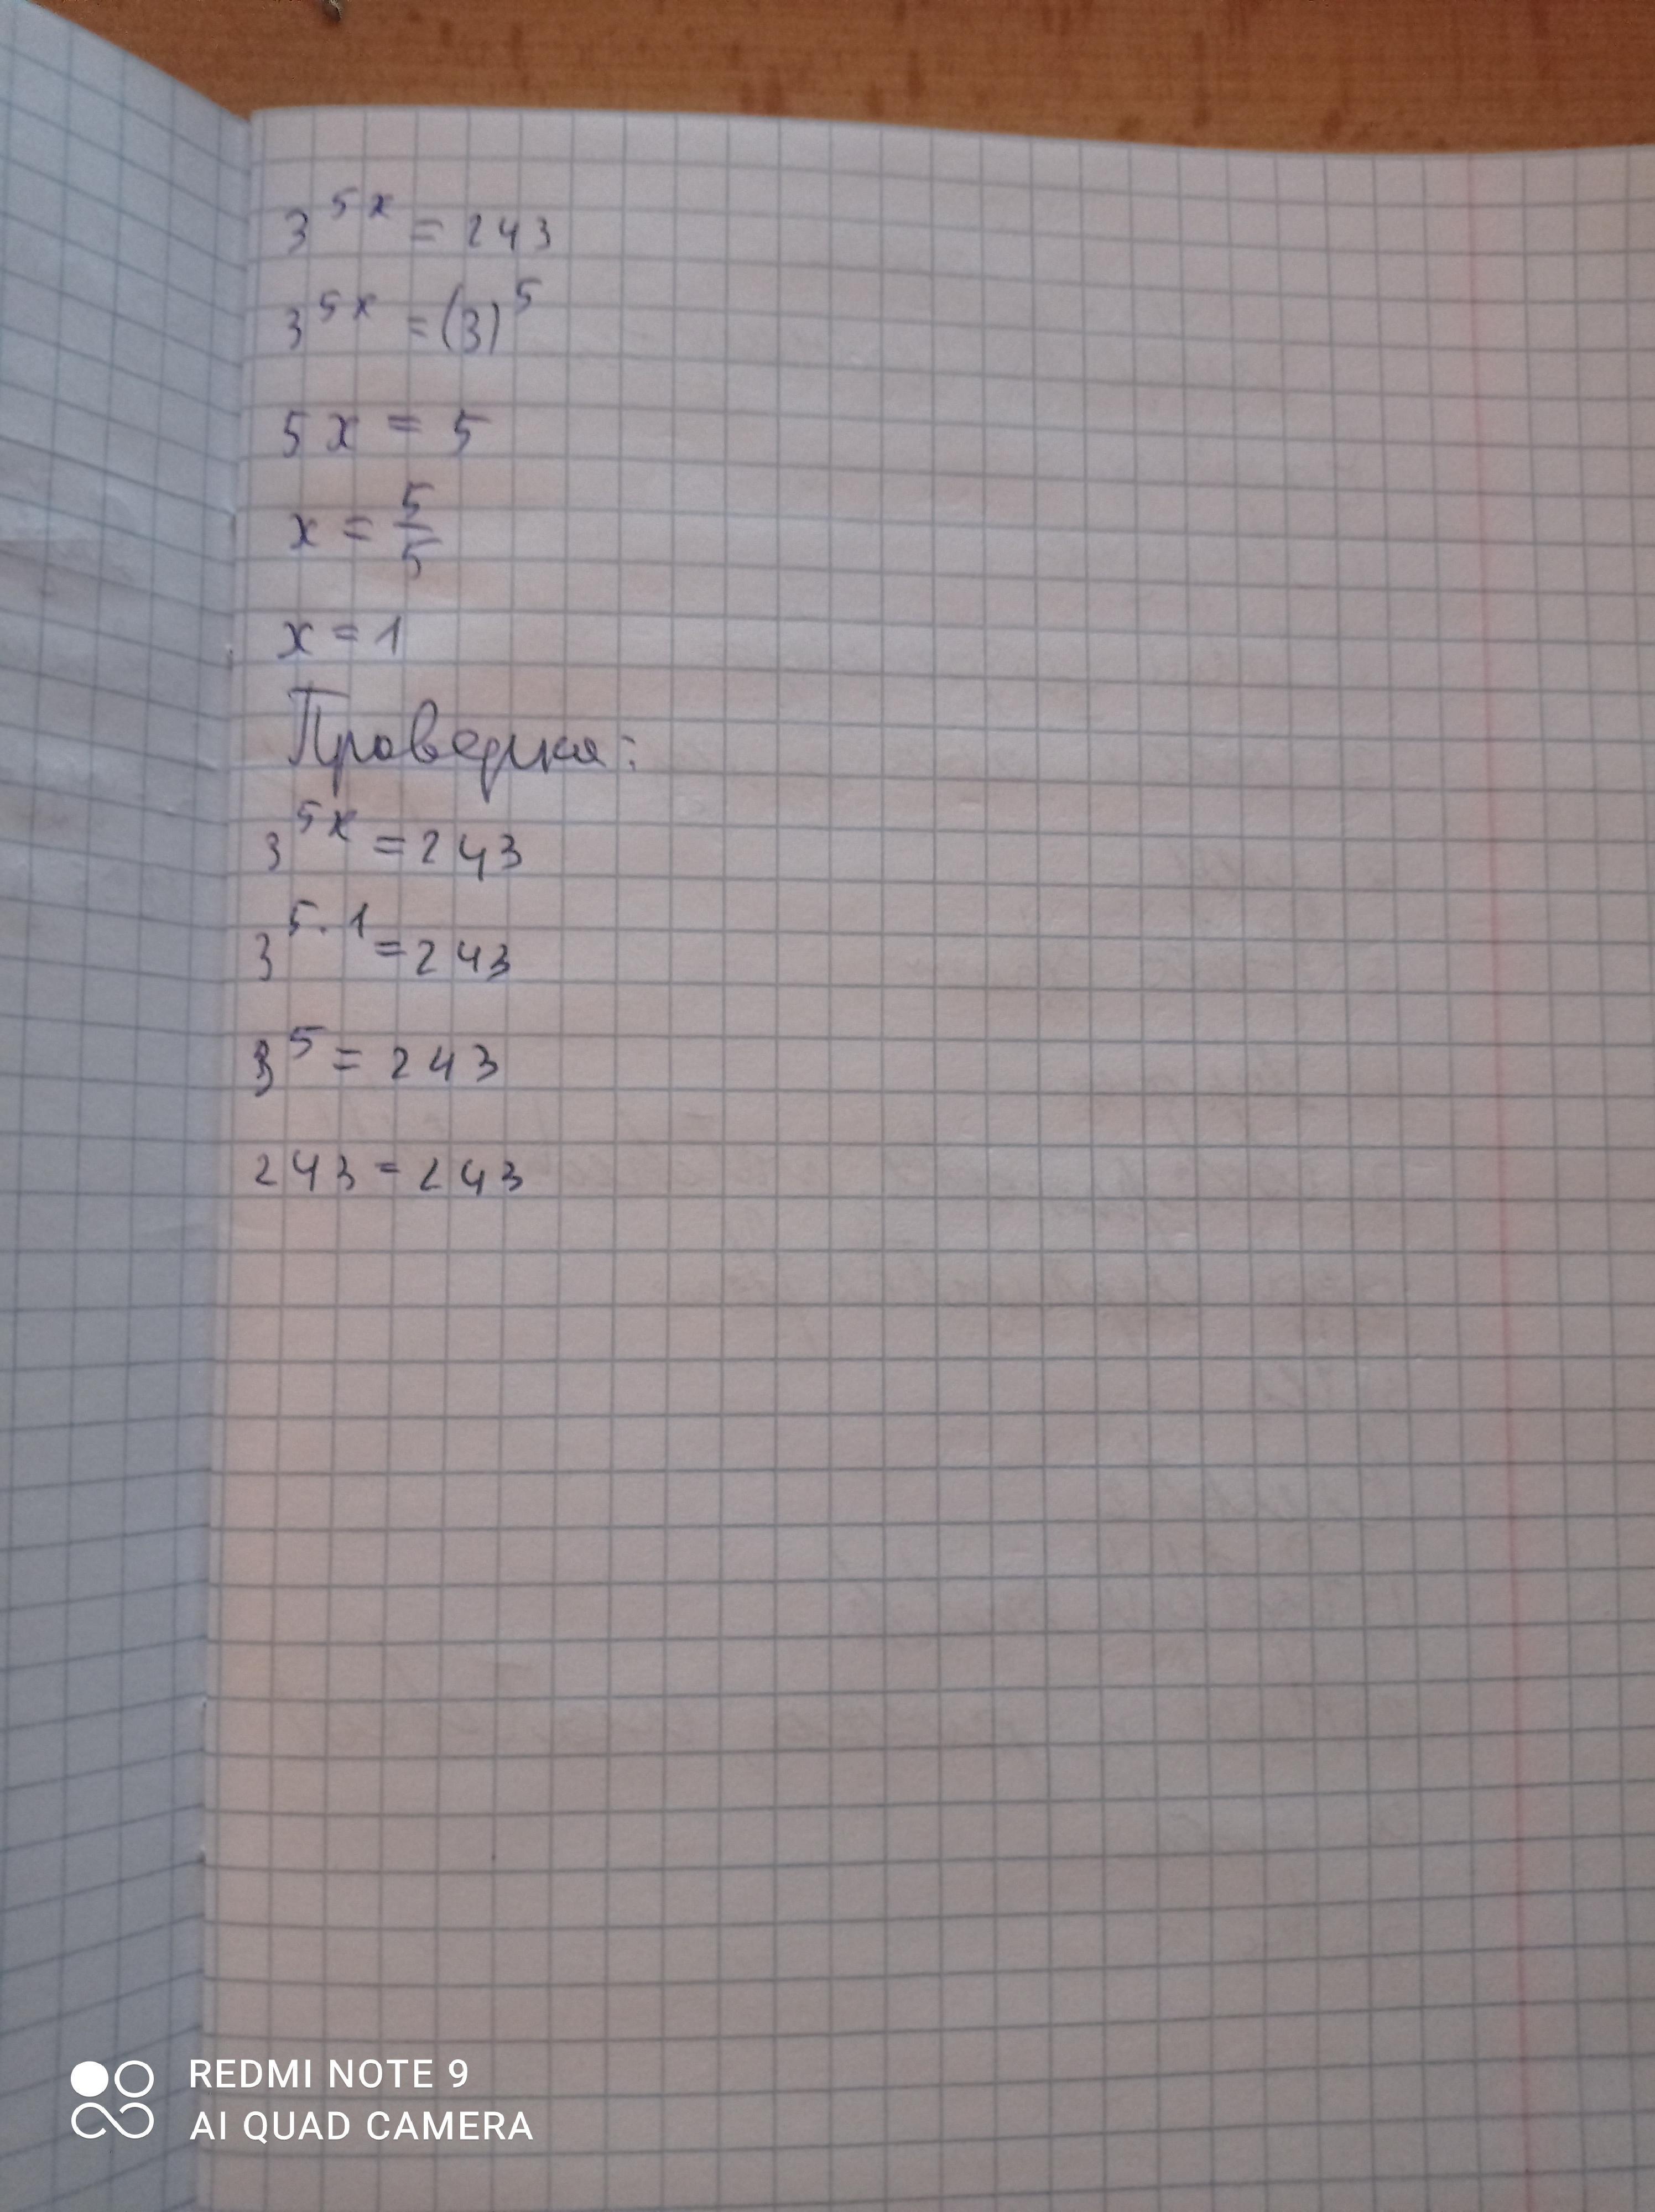 3^{5x} = 243
3^{5x} = (3)^5
5x = 5
x = \frac{5}{5}
x = 1
Проверка:
3^{5x} = 243
3^{5·1} = 243
3^5 = 243
243 = 243
REDMI NOTE 9
AI QUAD CAMERA